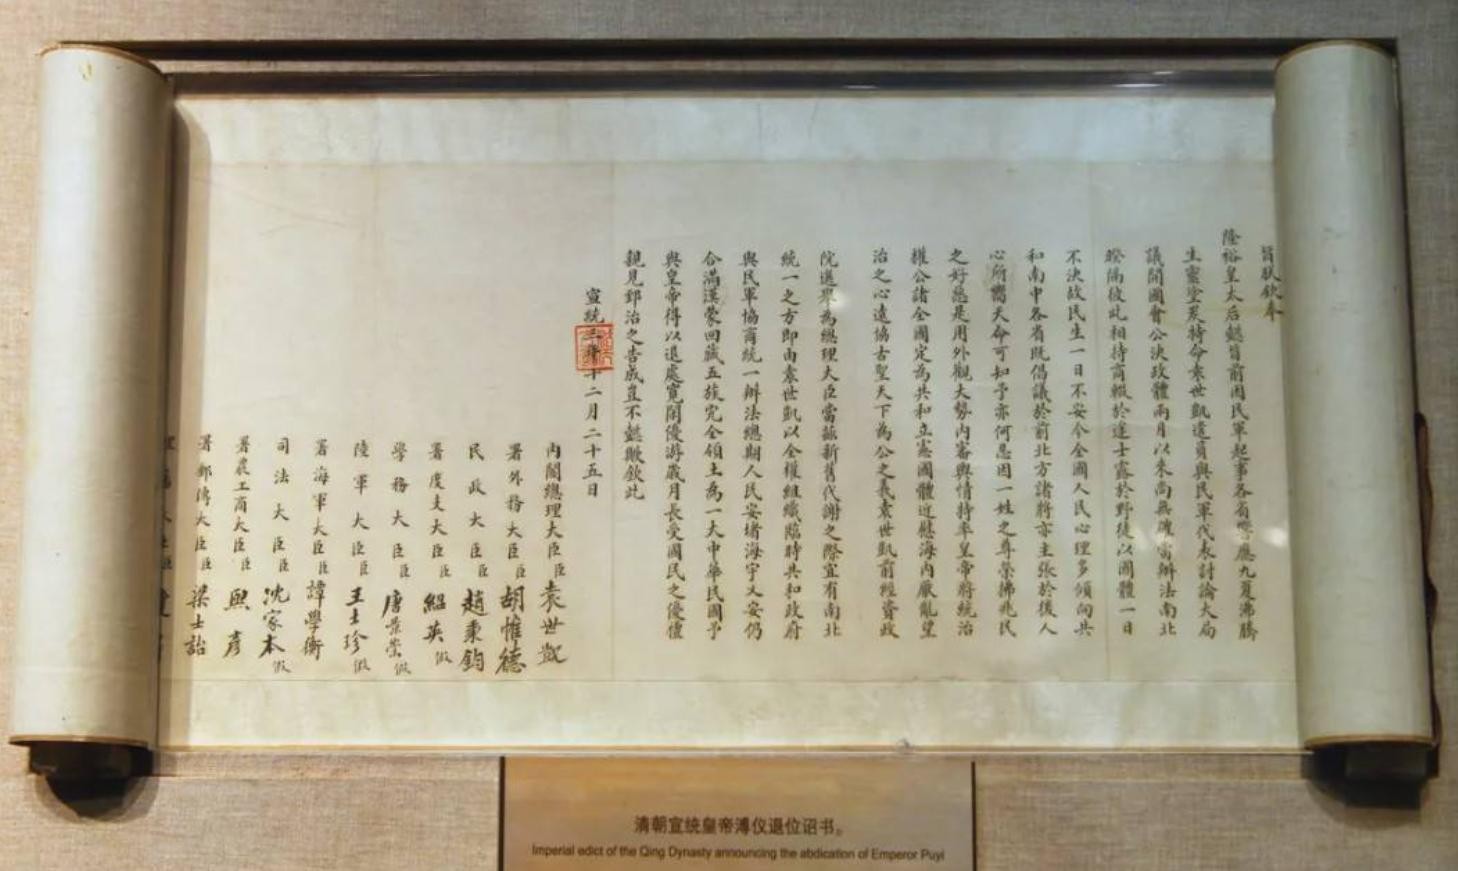 旨朕欽奉
隆裕皇太后懿旨前因民軍起事各省響應九夏沸騰
生靈塗炭特命袁世凱遣員與民軍代表討論大局
議開國會公決政體兩月以來尚無確當辦法南北
暌隔彼此相持商輟於途士露於野徒以國體一日
不決故民生一日不安今全國人民心理多傾向共
和南中各省既倡議於前北方諸將亦主張於後人
心所嚮天命可知予亦何忍因一姓之尊榮拂兆民
之好惡是用外觀大勢內審輿情特率皇帝將統治
權公諸全國定為共和立憲國體近慰海內厭亂望
治之心遠協古聖天下為公之義袁世凱前經資政
院選舉為總理大臣當茲新舊代謝之際宜有南北
統一之方即由袁世凱以全權組織臨時共和政府
與民軍協商統一辦法總期人民安堵海宇乂安仍
合滿漢蒙回藏五族完全領土為一大中華民國予
與皇帝得以退處寬閑優游歲月長受國民之優禮
親見郅治之告成豈不懿歟欽此
宣統三年十二月二十五日
內閣總理大臣臣袁世凱
署外務大臣臣胡惟德
民政大臣臣趙秉鈞
署度支大臣臣紹英假
學務大臣臣唐景崇假
陸軍大臣臣王士珍假
署海軍大臣臣譚學衡
司法大臣臣沈家本假
署農工商大臣臣熙彥
署郵傳大臣臣梁士詒
清朝宣统皇帝溥仪退位诏书。
Imperial edict of the Qing Dynasty announcing the abdication of Emperor Puyi